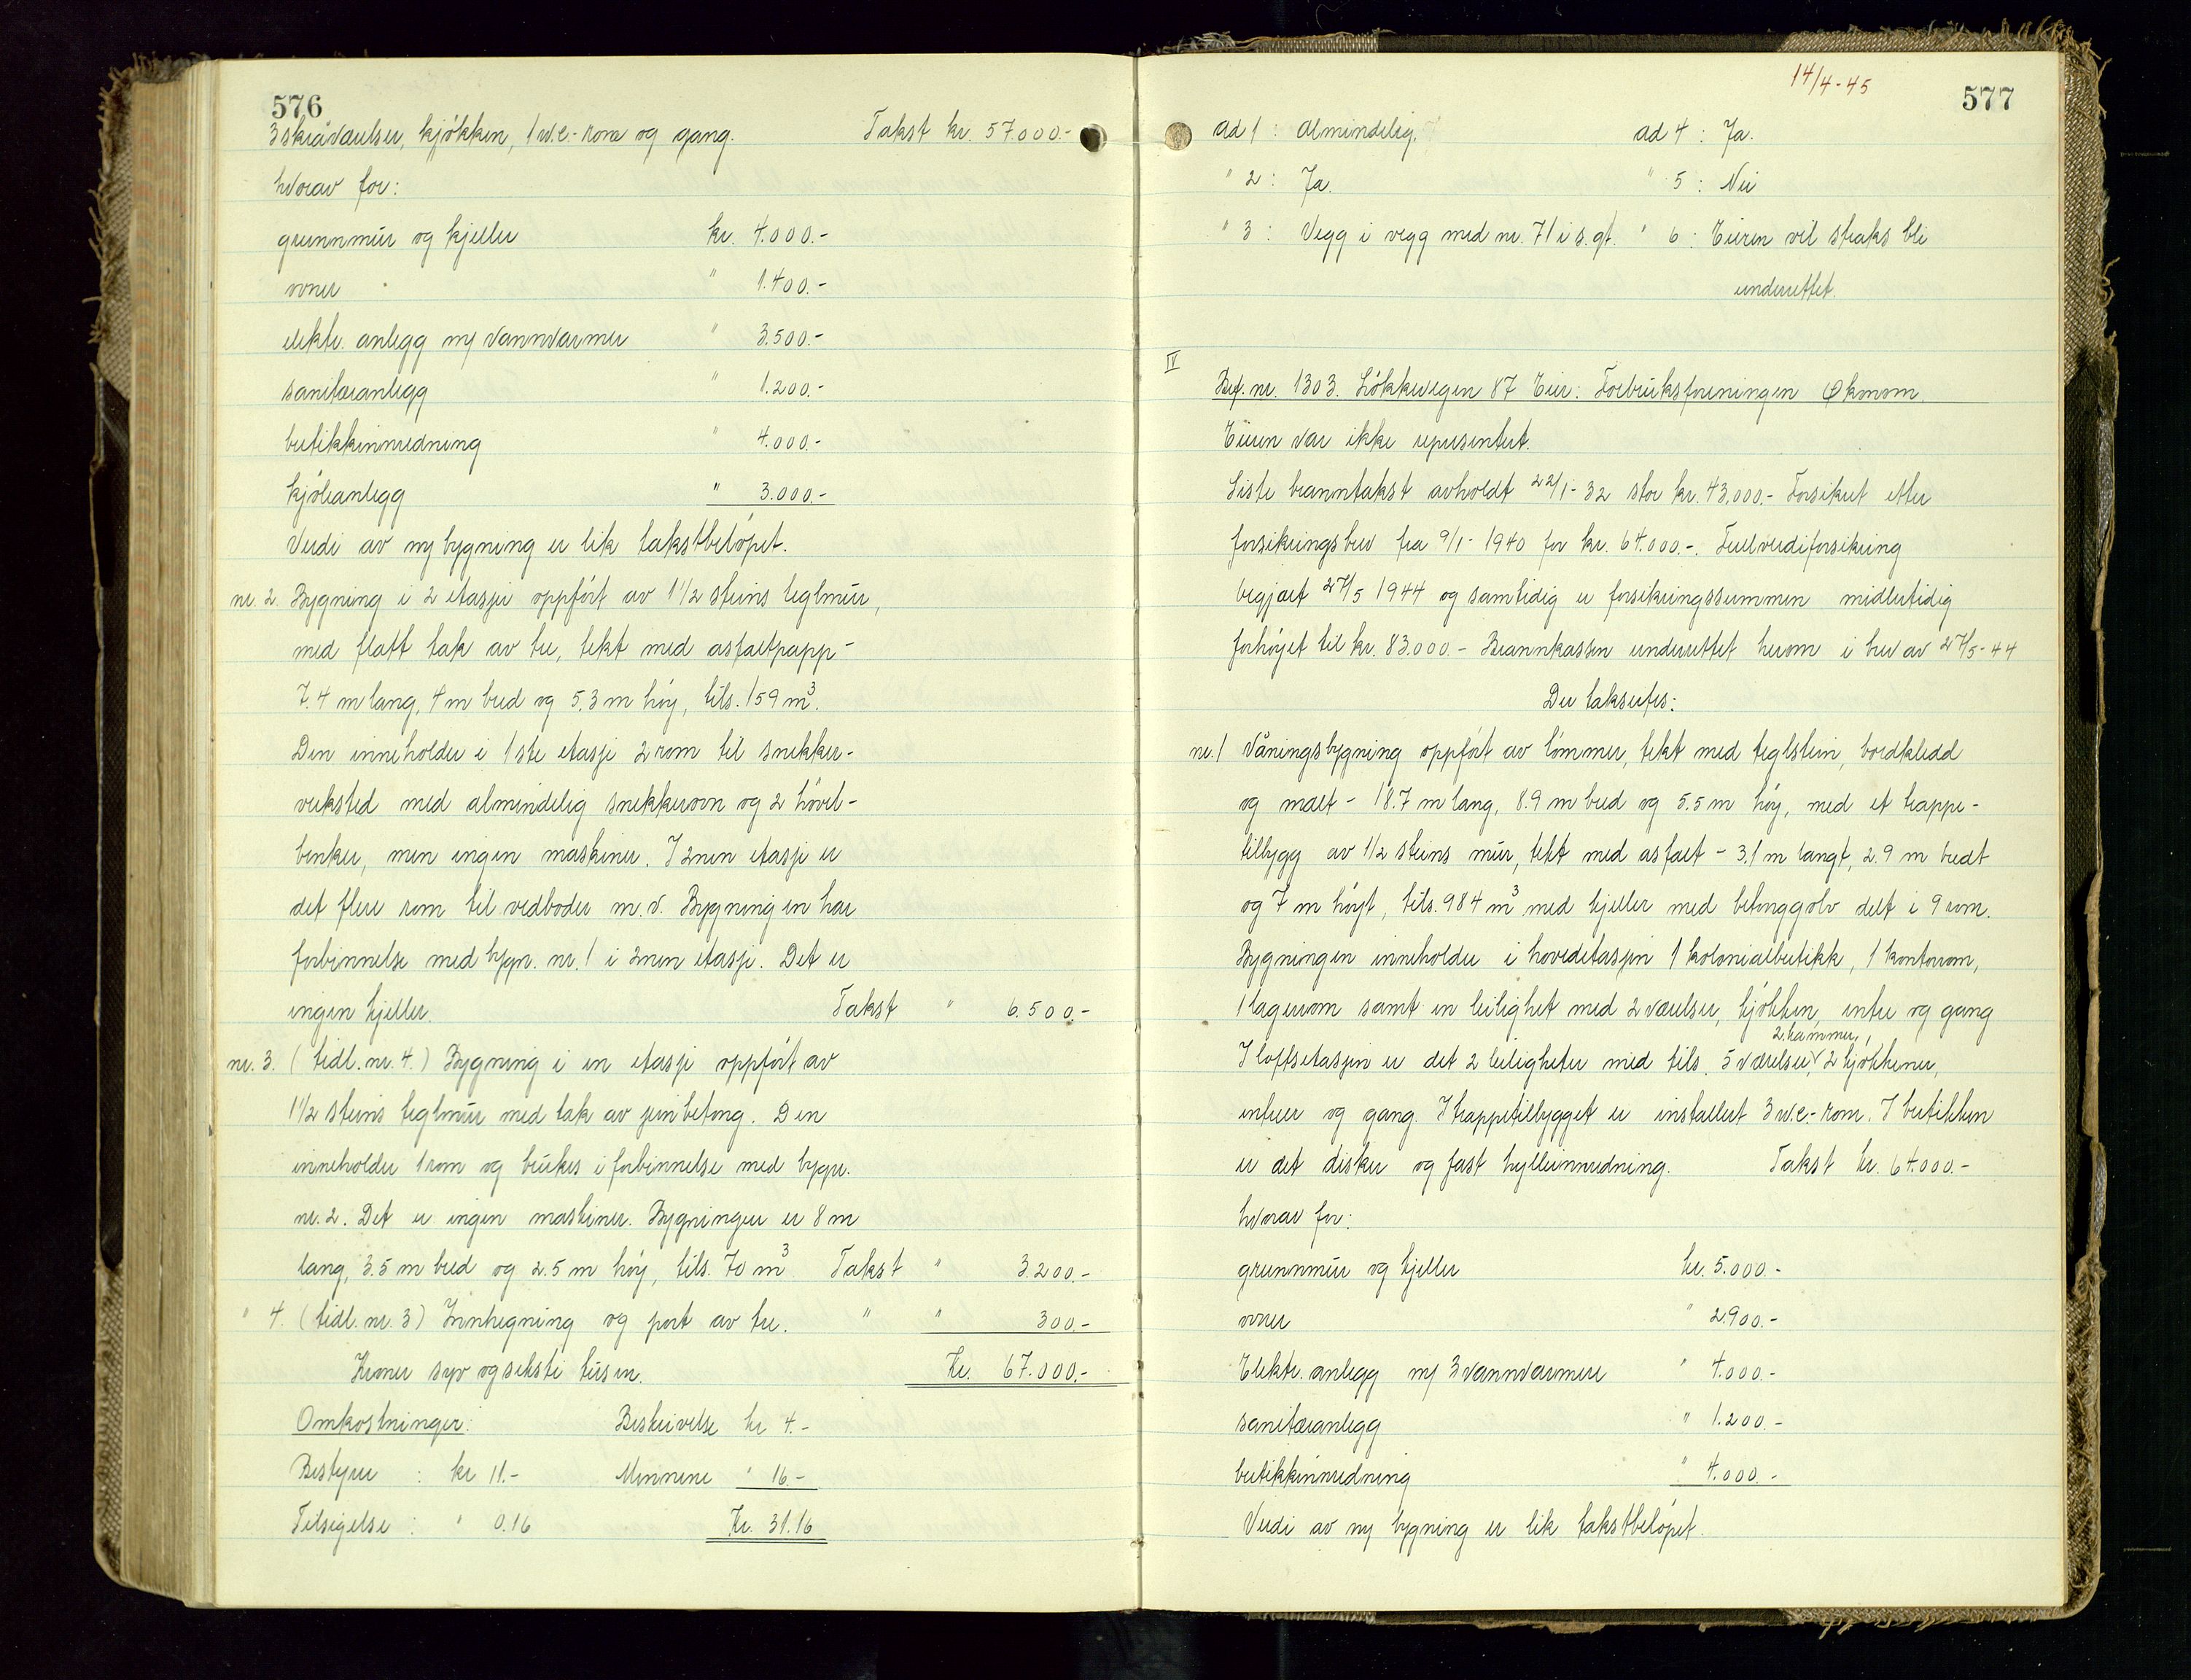 576
3 skråværelser, kjøkken, 1 w.c.-rom og gang. Takst kr. 57.000.-
hvorav for:
grunnmur og kjeller kr. 4.000.-
ovner " 1.400.-
elektr. anlegg m/ vannvarmer " 3.500.-
sanitæranlegg " 1.200.-
butikkinnredning " 4.000.-
kjøleanlegg " 3.000.-
Verdi av ny bygning er lik takstbeløpet.
nr. 2. Bygning i 2 etasjer oppført av 1 1/2 steins teglmur,
med flatt tak av tre, tekt med asfaltpapp -
7.4 m lang, 4 m bred og 5.3 m høy, tils. 159 m³.
Den inneholder i 1ste etasje 2 rom til snekker-
verksted med almindelig snekkerovn og 2 høvel-
benker, men ingen maskiner. I 2nen etasje er
det flere rom til vedboder m.v. Bygningen har
forbinnelse med bygn. nr. 1 i 2nen etasje. Det er
ingen kjeller. Takst " 6.500.-
nr. 3. (tidl. nr. 4.) Bygning i en etasje oppført av
1 1/2 steins teglmur med tak av jernbetong. Den
inneholder 1 rom og brukes i forbinnelse med bygn.
nr. 2. Det er ingen maskiner. Bygningen er 8 m
lang, 3.5 m bred og 2.5 m høy, tils. 70 m³ Takst " 3.200.-
" 4. (tidl. nr. 3) Innhegning og port av tre. " " 300.-
Kroner syv og seksti tusen. Kr. 67.000.-
Omkostninger: Beskrivelse kr 4.-
Bestyrer : kr 11.- Mennene " 16.-
Tilsigelse : " 0.16 Kr. 31.16
14/4-45
577
ad 1 : Almindelig. ad 4 : Ja.
" 2 : Ja. " 5 : Nei
" 3 : Vegg i vegg med nr. 71 i s. gt. " 6 : Eieren vil straks bli
underrettet.
IV
Brf. nr. 1303. Løkkevegen 87 Eier: Forbruksforeningen Økonom.
Eieren var ikke representert.
Siste branntakst avholdt 22/1-32 stor kr. 43.000.- Forsikret etter
forsikringsbrev fra 9/1-1940 for kr. 64.000.-. Fullverdiforsikring
begjært 27/5 1944 og samtidig er forsikringssummen midlertidig
forhøyet til kr. 83.000.- Brannkassen underrettet herom i brev av 27/5-44
Der takseres:
nr. 1 Våningsbygning oppført av tømmer, tekt med teglstein, bordkledd
og malt - 18.7 m lang, 8.9 m bred og 5.5 m høy, med et trappe-
tilbygg av 1/2 steins mur, tekt med asfalt - 3.1 m langt, 2.9 m bredt
og 7 m høyt, tils. 984 m³ med kjeller med betonggolv delt i 9 rom.
Bygningen inneholder i hovedetasjen 1 kolonialbutikk, 1 kontorrom,
1 lagerrom samt en leilighet med 2 værelser, kjøkken, entre og gang
2 kammer,
I loftsetasjen er det 2 leiligheter med tils. 5 værelser, 2 kjøkkener,
entreer og gang. I trappetilbygget er installert 3 w.c.-rom. I butikken
er det disker og fast hylleinnredning. Takst kr. 64.000.-
hvorav for:
grunnmur og kjeller kr. 5.000.-
ovner " 2.900.-
Elektr. anlegg m/ 3 vannvarmere " 4.000.-
sanitæranlegg " 1.200.-
butikkinnredning " 4.000.-
Verdi av ny bygning er lik takstbeløpet.